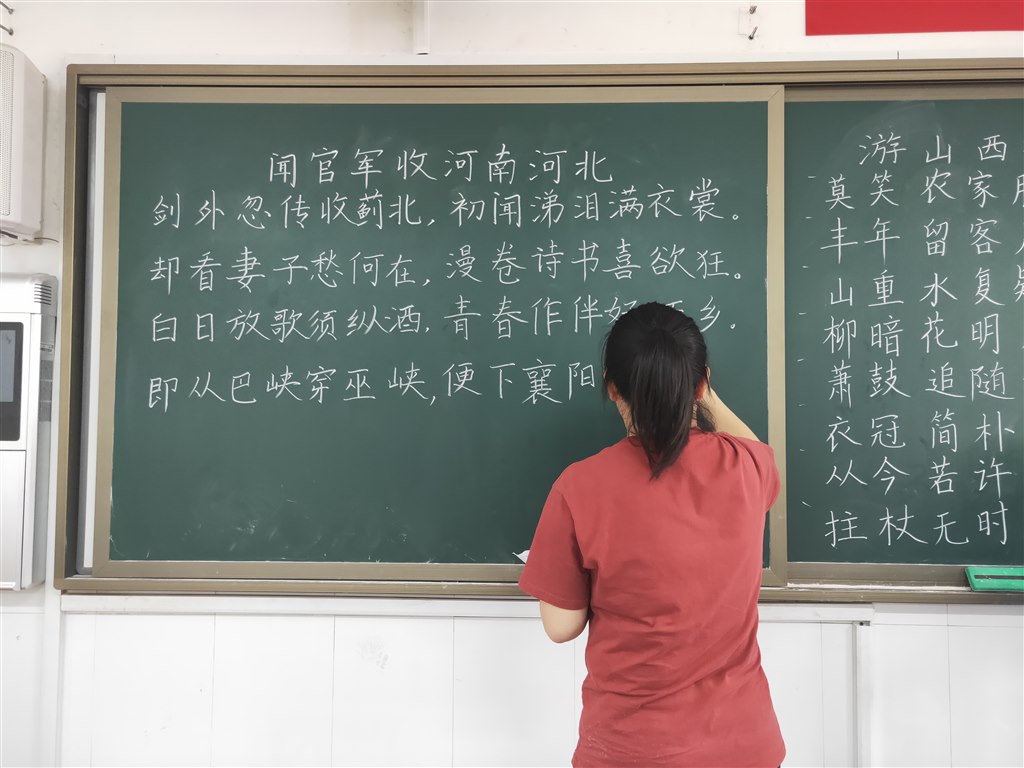 闻官军收河南河北
剑外忽传收蓟北,初闻涕泪满衣裳。
却看妻子愁何在,漫卷诗书喜欲狂。
白日放歌须纵酒,青春作伴好乡。
即从巴峡穿巫峡,便下襄阳
游山西
莫笑农家
丰年留客
山重水复
柳暗花明
萧鼓追随
衣冠简朴
从今若许
拄杖无时